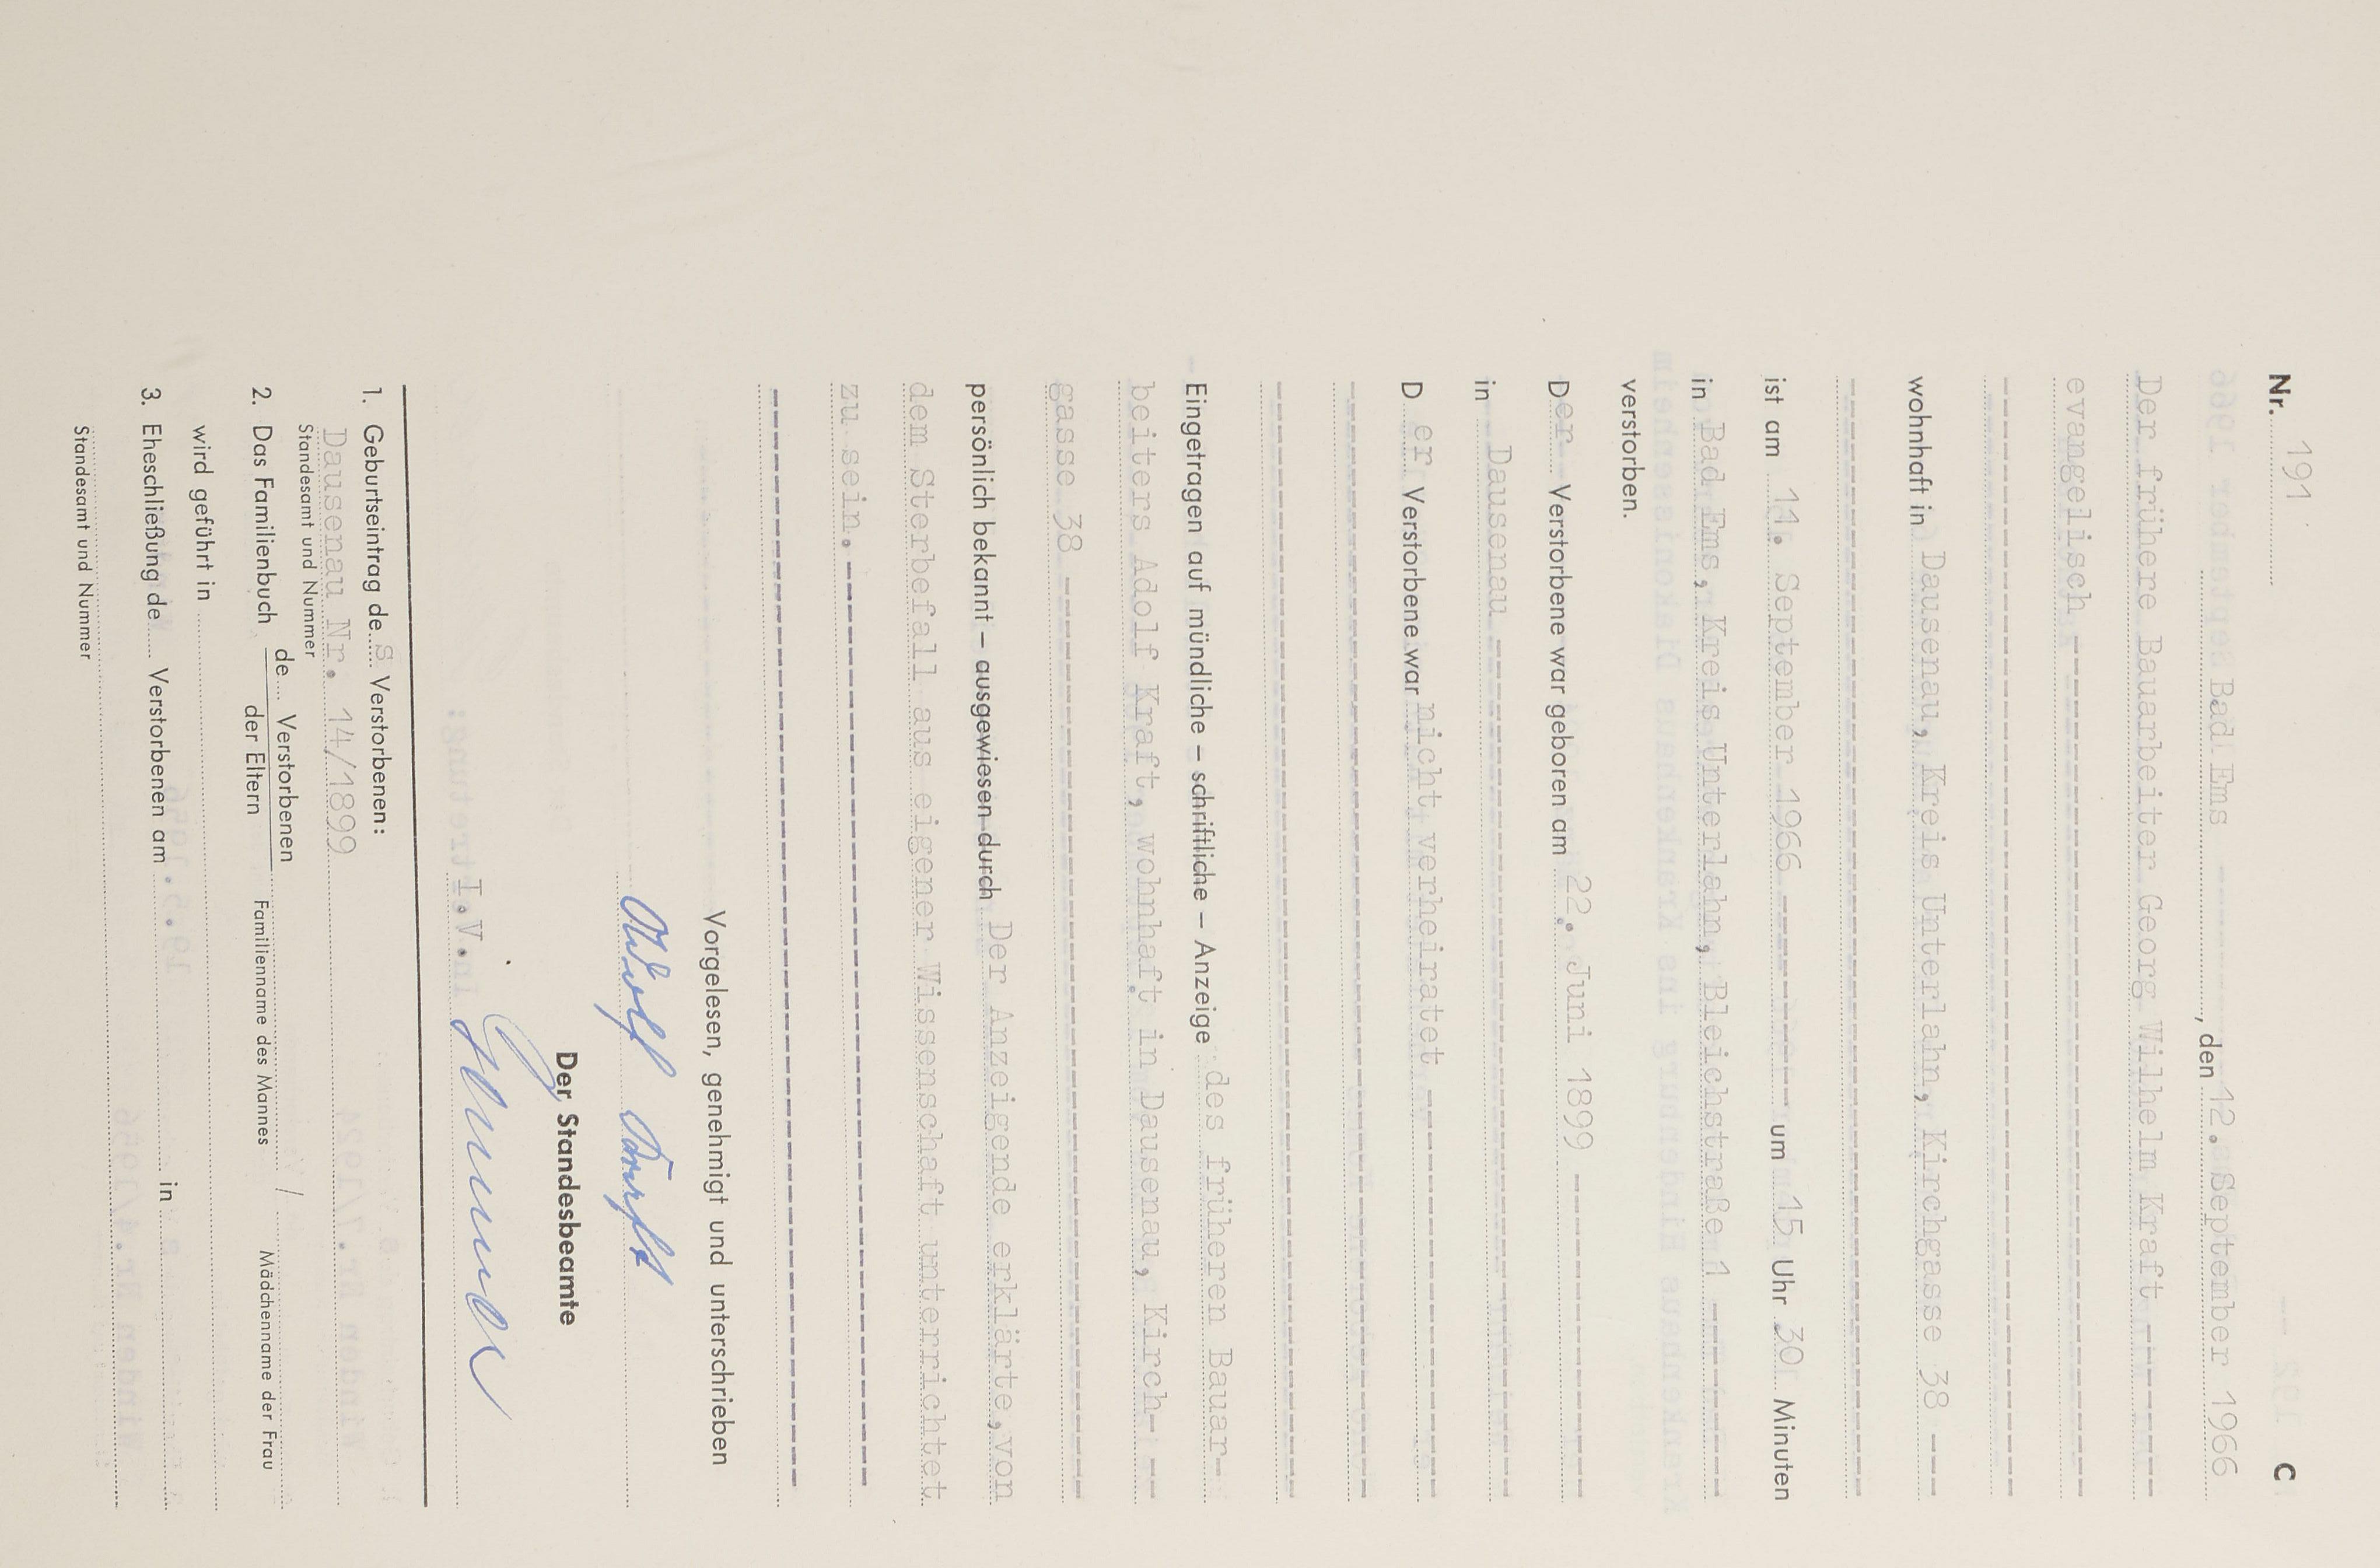 Nr. 191 C
Bad Ems, den 12. September 1966
Der frühere Bauarbeiter Georg Wilhelm Kraft
evangelisch
wohnhaft in Dausenau, Kreis Unterlahn, Kirchgasse 38
ist am 11. September 1966 um 15 Uhr 30 Minuten
in Bad Ems, Kreis Unterlahn, Bleichstraße 1
verstorben.
Der Verstorbene war geboren am 22. Juni 1899
in Dausenau
Der Verstorbene war nicht verheiratet
Eingetragen auf mündliche – schriftliche – Anzeige des früheren Bauar-
beiters Adolf Kraft, wohnhaft in Dausenau, Kirch-
gasse 38
persönlich bekannt – ausgewiesen durch Der Anzeigende erklärte, von
dem Sterbefall aus eigener Wissenschaft unterrichtet
zu sein.
Vorgelesen, genehmigt und unterschrieben
Adolf Kraft
Der Standesbeamte
I.V.
1. Geburtseintrag des Verstorbenen:
Dausenau Nr. 14/1899
Standesamt und Nummer
2. Das Familienbuch de Verstorbenen / der Eltern
Familienname des Mannes / Mädchenname der Frau
wird geführt in
3. Eheschließung de Verstorbenen am in
Standesamt und Nummer